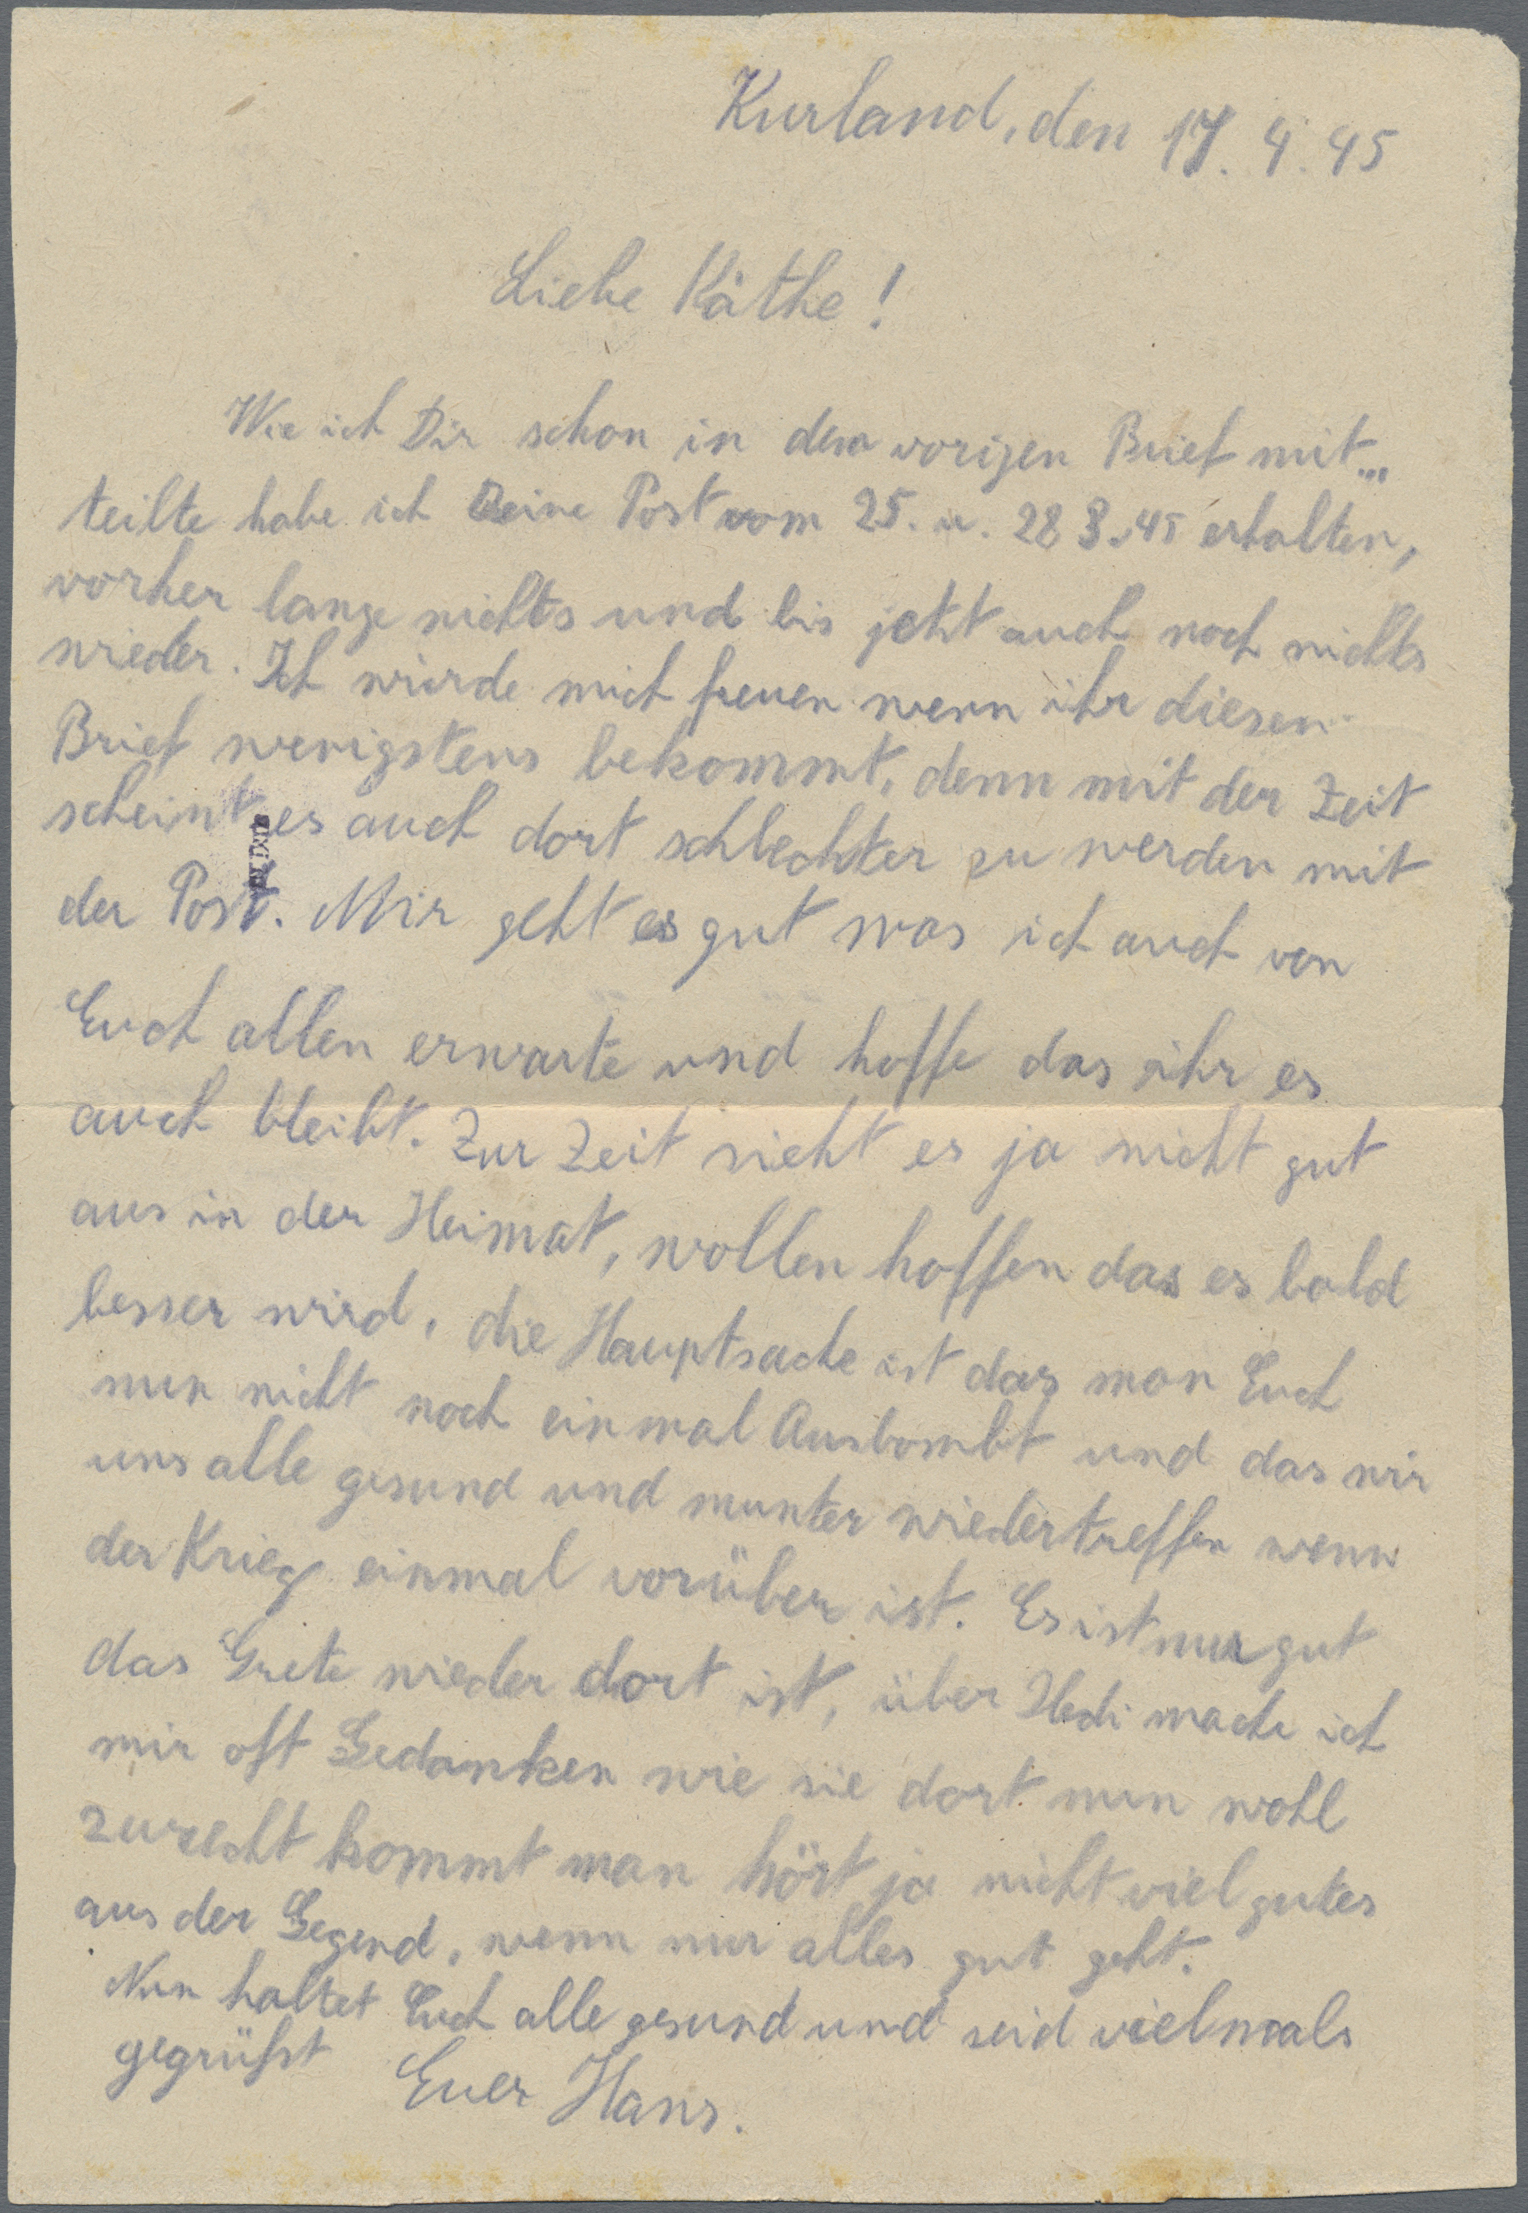 Kurland, den 17. 4. 45
Liebe Käthe!
Wie ich Dir schon in dem vorigen Brief mit...
teilte habe ich Deine Post vom 25. u. 28 3.45 erhalten,
vorher lange nichts und bis jetzt auch noch nichts
wieder. Ich würde mich freuen wenn ihr diesen
Brief wenigstens bekommt, denn mit der Zeit
scheint es auch dort schlechter zu werden mit
der Post. Mir geht es gut was ich auch von
Euch allen erwarte und hoffe das ihr es
auch bleibt. Zur Zeit sieht es ja nicht gut
aus in der Heimat, wollen hoffen das es bald
besser wird, die Hauptsache ist das man Euch
nun nicht noch einmal Ausbombt und das wir
uns alle gesund und munter wiedertreffen wenn
der Krieg einmal vorüber ist. Es ist nur gut
das Grete wieder dort ist, über Hedi mache ich
mir oft Gedanken wie sie dort nun wohl
zurecht kommt man hört ja nicht viel gutes
aus der Gegend, wenn nur alles gut geht.
Nun haltet Euch alle gesund und seid vielmals
gegrüßt Euer Hans.